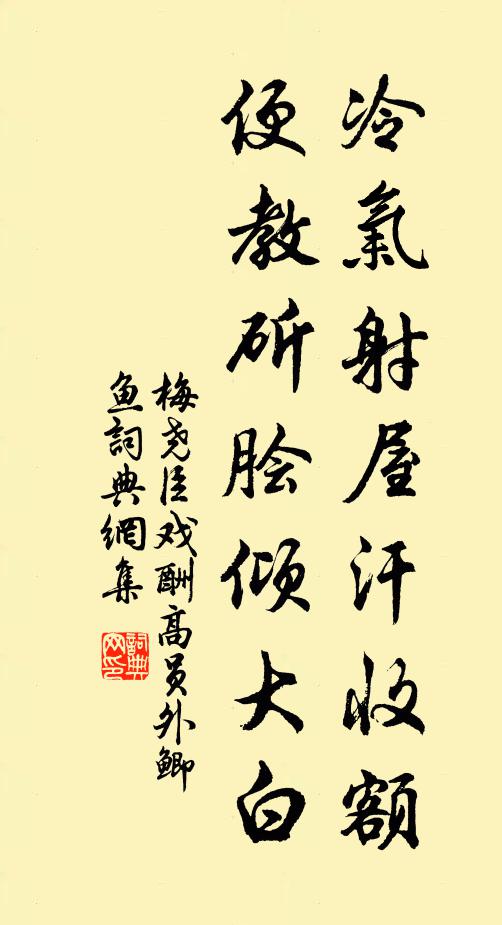 冷氣射屋汗收額
便教斫脍傾大白
梅尧臣戏酬高员外鲫
鱼詞典網集
詞典網印